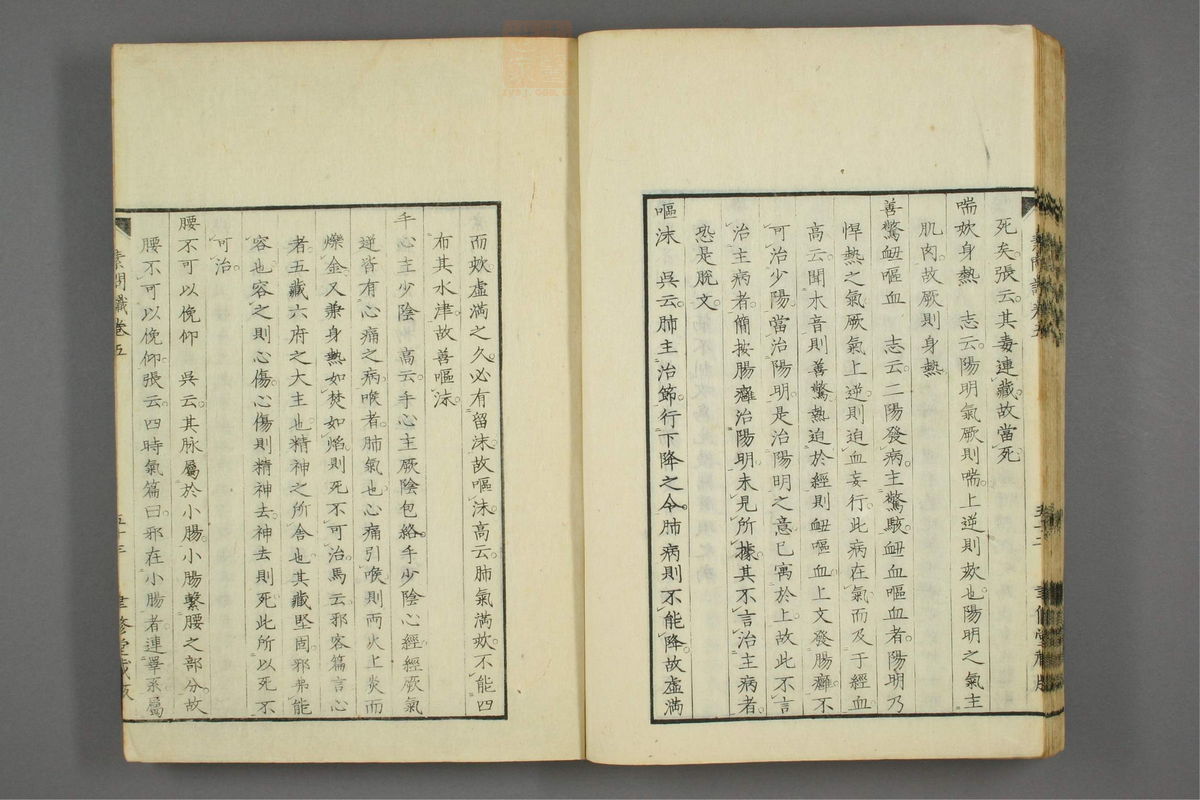 死矣。張云。其毒連藏。故當死
喘欬身熱　志云。陽明氣厥則喘。上逆則欬也。陽明之氣主
肌肉。故厥則身熱
善驚衄嘔血　志云。二陽發病。主驚駭。衄血嘔血者。陽明乃
悍熱之氣。厥氣上逆。則迫血妄行。此病在氣而及于經血
高云。聞木音則善驚。熱迫於經。則衄嘔血。上文發腸癰。不
可治少陽。當治陽明。是治陽明之意。已寓於上。故此不言
治主病者。簡按腸癰治陽明。未見所據。其不言治主病者。
恐是脫文。
嘔沫　吳云。肺主治節。行下降之令。肺病則不能降。故虛滿
而欬。虛滿之久。必有留沫。故嘔沫。高云。肺氣滿欬。不能四
布其水津。故善嘔沫。
手心主少陰　高云。手心主厥陰包絡。手少陰心經。經厥氣
逆。皆有心痛之病。喉者。肺氣也。心痛引喉。則兩火上炎而
爍金。又兼身熱如焚如焰。則死不可治。馬云。邪客篇言心
者。五藏六府之大主也。精神之所舍也。其藏堅固。邪弗能
容也。容之則心傷。心傷則精神去。神去則死。此所以死不
可治。
腰不可以俛仰　吳云。其脉屬於小腸。小腸繫腰之部分。故
腰不可以俛仰。張云。四時氣篇曰。邪在小腸者。連睪系。屬
素問識卷五